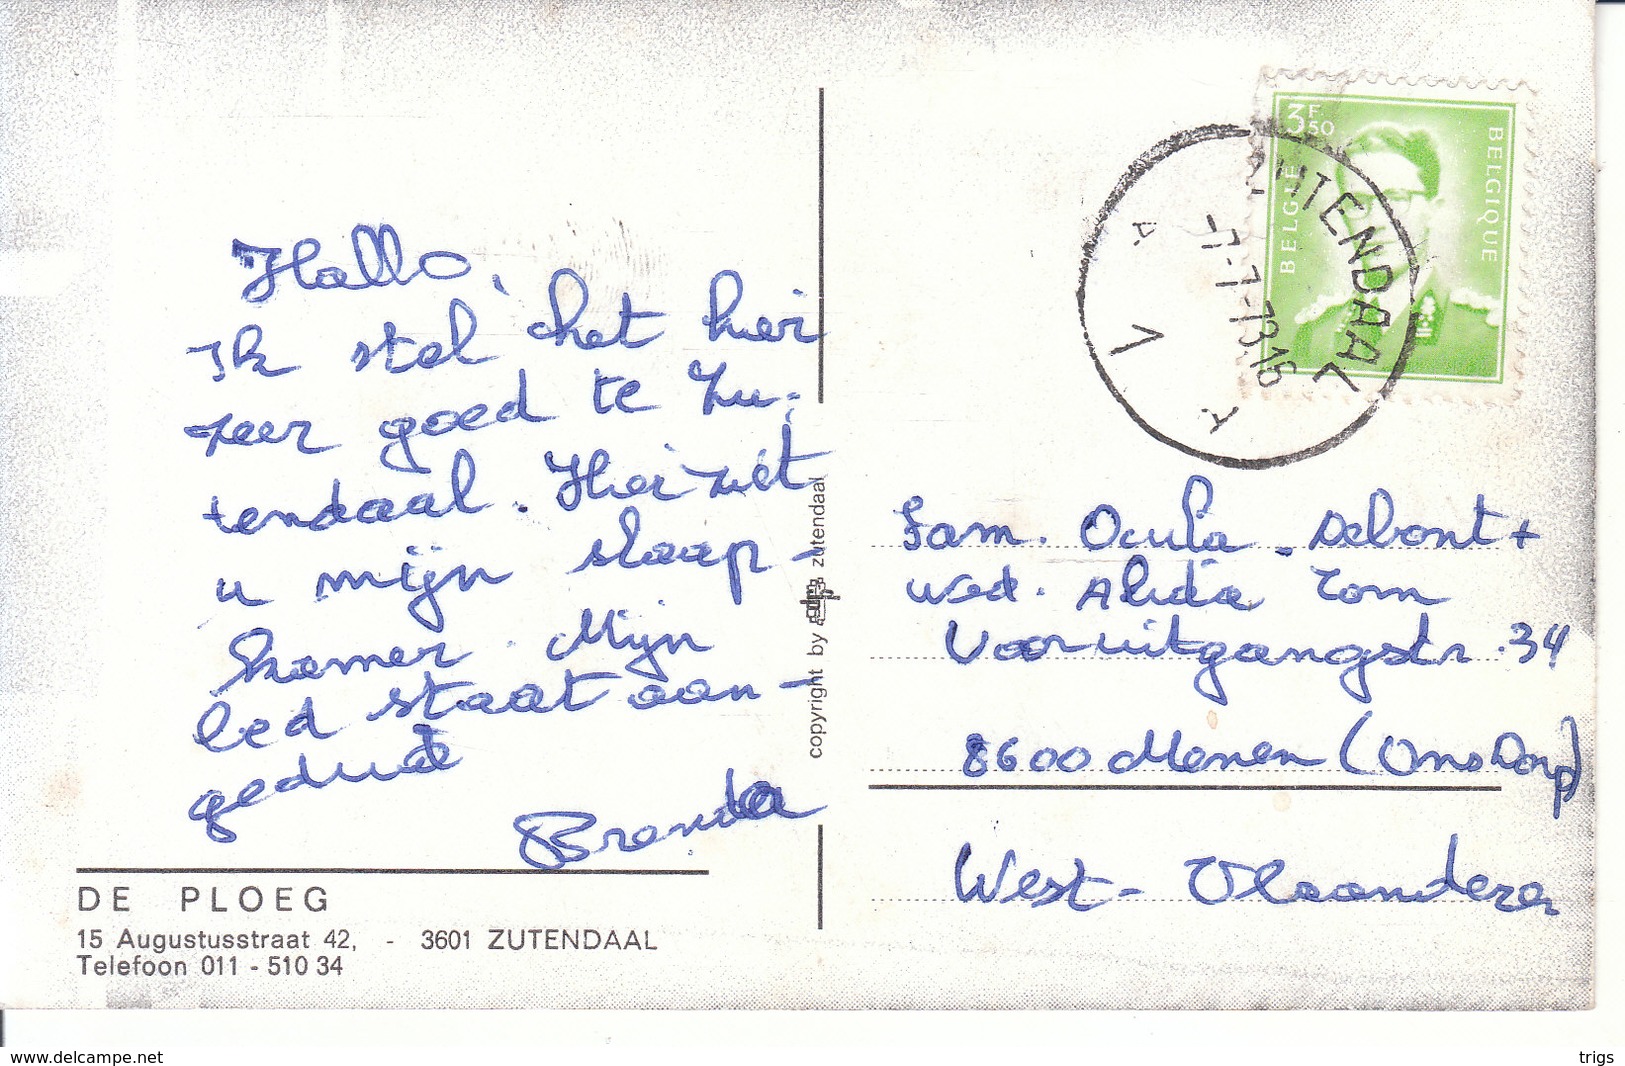 Hallo,
Ik stel het hier
zeer goed te Zu-
tendaal. Hier ziet
u mijn slaap-
kamer. Mijn
bed staat aan-
geduid
Brenda
DE PLOEG
15 Augustusstraat 42, - 3601 ZUTENDAAL
Telefoon 011 - 510 34
copyright by zutendaal
3F50
BELGIE
BELGIQUE
ZUTENDAAL
-7-7-73.16
A 1 A
Fam. - Debont +
Wed. Alida Tom
Vooruitgangstr. 34
8600 Menen (Ons Dorp)
West-Vlaanderen
www.delcampe.net
trigs